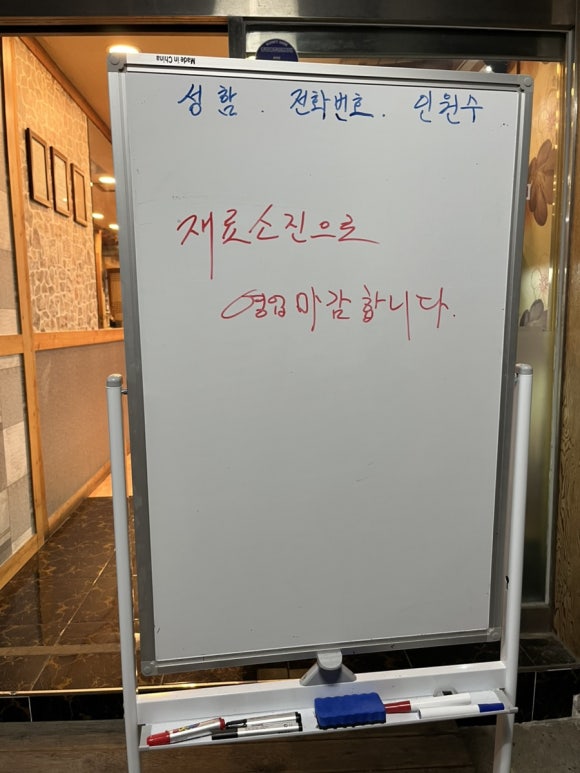 Made in China
성함. 전화번호. 인원수
재료소진으로
영업마감합니다.